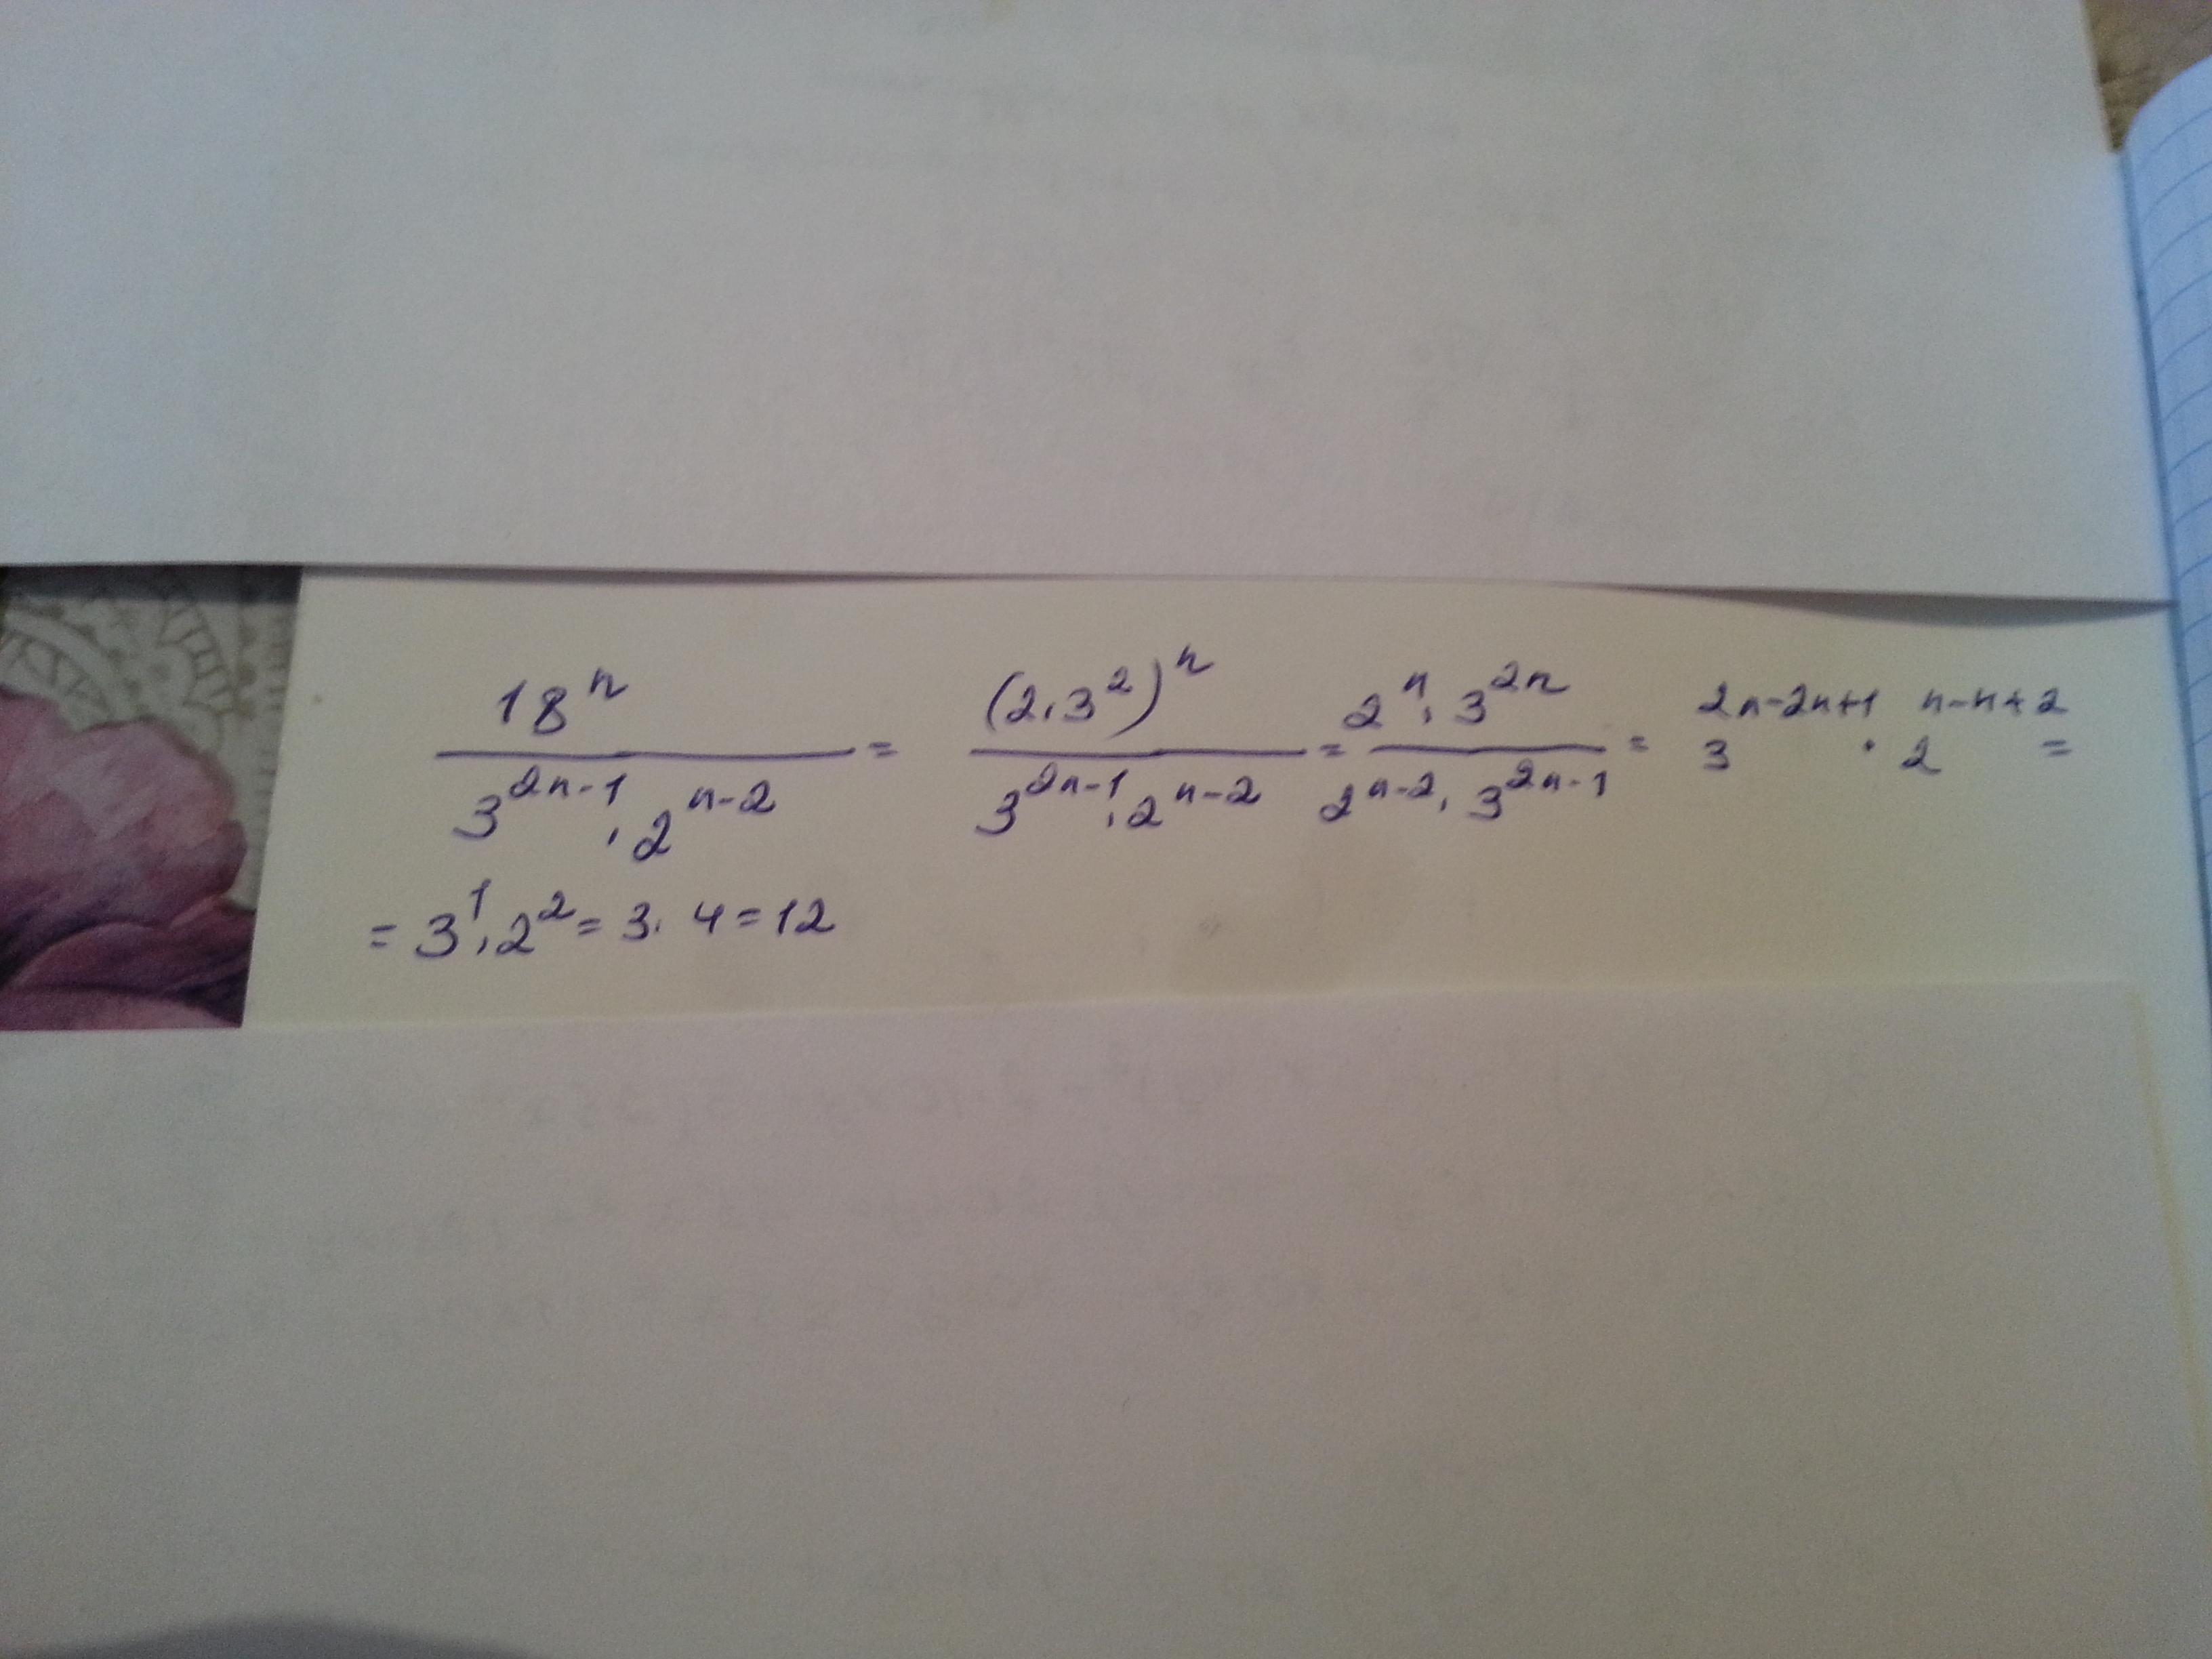 18^n / (3^(2n-1) · 2^(n-2)) = (2·3^2)^n / (3^(2n-1) · 2^(n-2)) = 2^n · 3^(2n) / (2^(n-2) · 3^(2n-1)) = 3^(2n-2n+1) · 2^(n-n+2) =
= 3^1 · 2^2 = 3 · 4 = 12